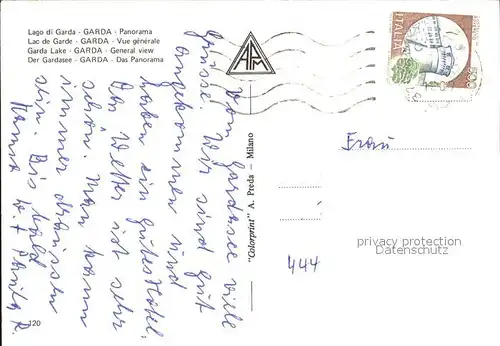 Lago di Garda - GARDA - Panorama
Lac de Garde - GARDA - Vue générale
Garda Lake - GARDA - General view
Der Gardasee - GARDA - Das Panorama
APM
ITALIA
Vom Gardasee viele
Grüsse. Wir sind gut
angekommen und
haben ein gutes Hotel.
Das Wetter ist sehr
schön. Man kann
immer draussen
sein. Bis bald
Hanna
"Colorprint" A. Preda - Milano
Frau
444
privacy protection
AnsichtskartenVersand.com
120